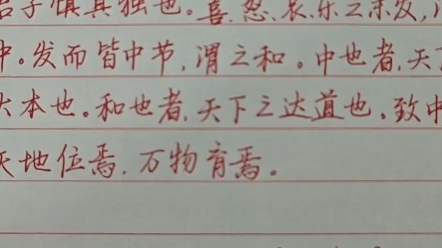 君子慎其独也。喜、怒、哀、乐之未发,
中。发而皆中节,谓之和。中也者,天
大本也。和也者,天下之达道也。致中
天地位焉,万物育焉。